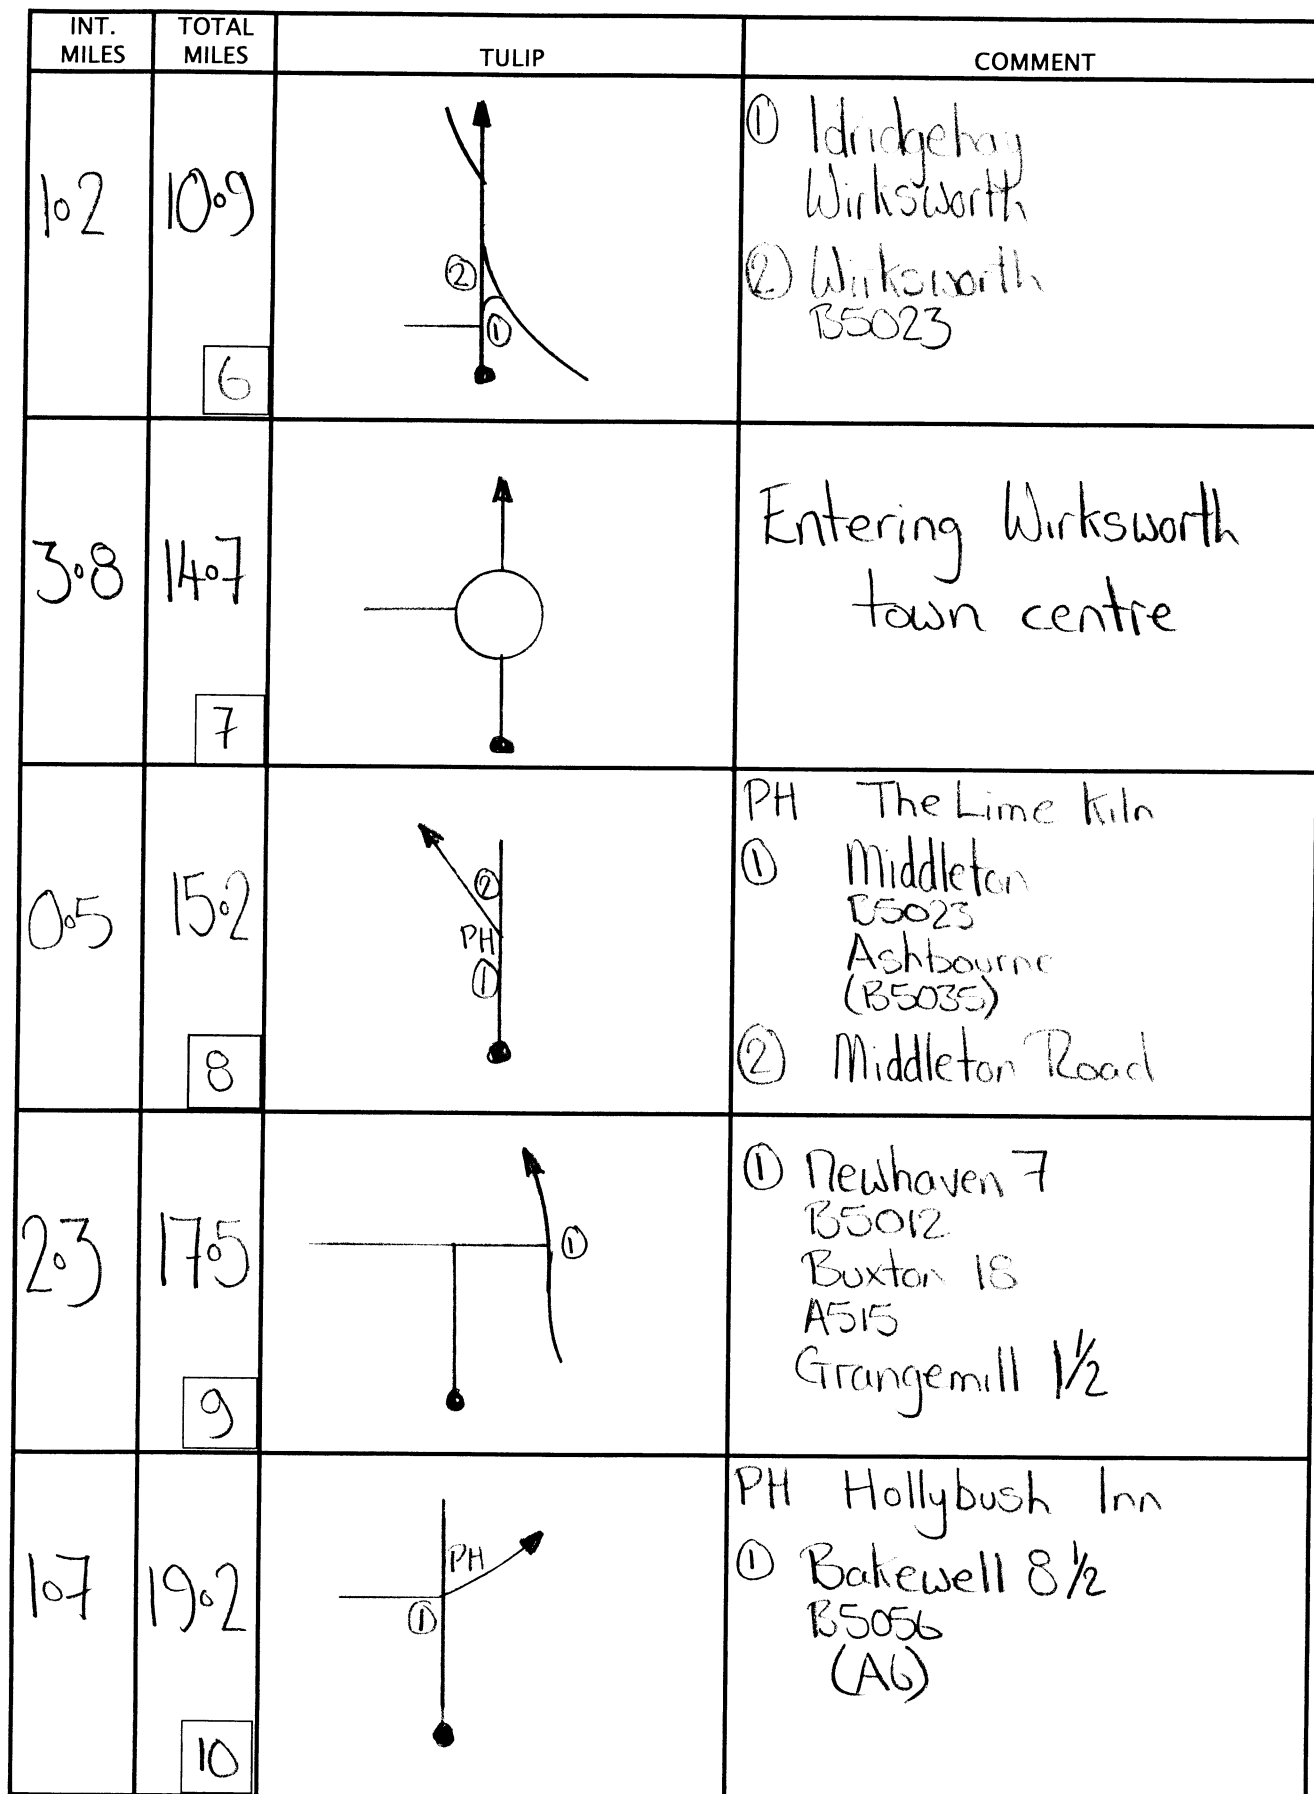 INT. MILES
TOTAL MILES
TULIP
COMMENT
1.2
10.9
6
②
①
① Idridgehay
Wirksworth
② Wirksworth
B5023
3.8
14.7
7
Entering Wirksworth
town centre
0.5
15.2
8
②
PH
①
PH The Lime Kiln
① Middleton
B5023
Ashbourne
(B5035)
② Middleton Road
2.3
17.5
9
①
① Newhaven 7
B5012
Buxton 18
A515
Grangemill 1½
1.7
19.2
10
PH
①
PH Hollybush Inn
① Bakewell 8½
B5056
(A6)